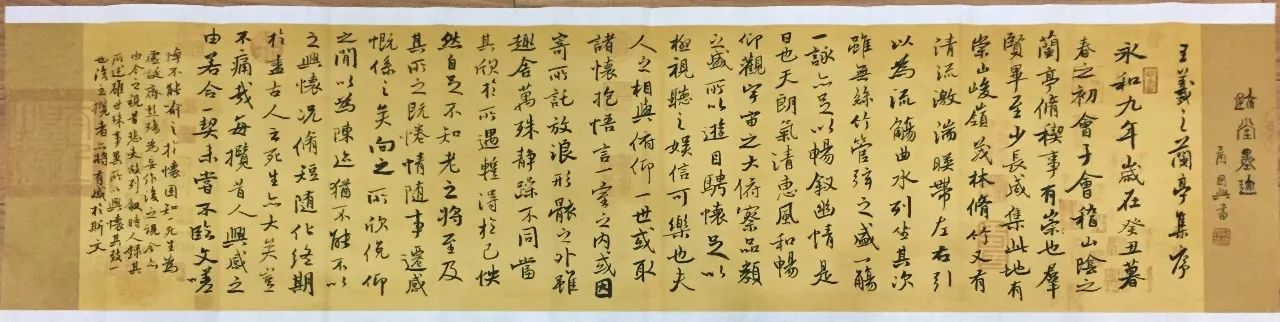 墨迹
王羲之蘭亭集序
永和九年歲在癸丑暮
春之初會于會稽山陰之
蘭亭脩稧事有崇也羣
賢畢至少長咸集此地有
崇山峻嶺茂林脩竹又有
清流激湍暎帶左右引
以為流觴曲水列坐其次
雖無絲竹管弦之盛一觴
一詠亦足以暢叙幽情是
日也天朗氣清惠風和暢
仰觀宇宙之大俯察品類
之盛所以遊目騁懷足以
極視聽之娛信可樂也夫
人之相與俯仰一世或取
諸懷抱悟言一室之內或因
寄所託放浪形骸之外雖
趣舍萬殊靜躁不同當
其欣於所遇輒得於己怏
然自足不知老之將至及
其所之既惓情隨事遷感
慨係之矣向之所欣俛仰
之閒以為陳迹猶不能不以
之興懷况脩短隨化終期
於盡古人云死生亦大矣豈
不痛哉每攬昔人興感之
由若合一契未嘗不臨文嗟
悼不能喻之於懷固知一死生為
虛誕齊彭殤為妄作後之視今亦
由今之視昔悲夫故列叙時人錄其
所述雖世殊事異所以興懷其致一
也後之攬者亦將有感於斯文